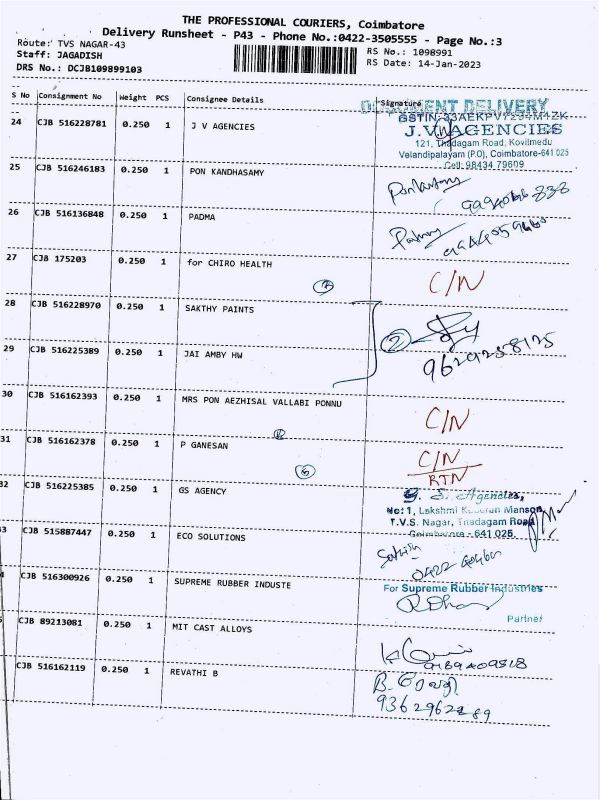 THE PROFESSIONAL COURIERS, Coimbatore
Delivery Runsheet - P43 - Phone No.:0422-3505555 - Page No.:3
Route: TVS NAGAR-43
RS No.: 1098991
Staff: JAGADISH
RS Date: 14-Jan-2023
DRS No.: DCJB109899103
S No Consignment No Weight PCS Consignee Details Signature
DOCUMENT DELIVERY
24 CJB 516228781 0.250 1 J V AGENCIES
J.V. AGENCIES
121, Thadagam Road, Kovilmedu
Velandipalayam (P.O), Coimbatore-641 025
Cell: 98434 79609
25 CJB 516246183 0.250 1 PON KANDHASAMY
26 CJB 516136848 0.250 1 PADMA
27 CJB 175203 0.250 1 for CHIRO HEALTH C/N
28 CJB 516228970 0.250 1 SAKTHY PAINTS
2
29 CJB 516225389 0.250 1 JAI AMBY HW
9629258125
30 CJB 516162393 0.250 1 MRS PON AEZHISAL VALLABI PONNU C/N
31 CJB 516162378 0.250 1 P GANESAN C/N
RTN
32 CJB 516225385 0.250 1 GS AGENCY
G. S. Agencies,
No: 1, Lakshmi Manson,
T.V.S. Nagar, Thadagam Road
Coimbatore - 641 025.
3 CJB 515887447 0.250 1 ECO SOLUTIONS
CJB 516300926 0.250 1 SUPREME RUBBER INDUSTE
For Supreme Rubber Industries
Partner
CJB 89213081 0.250 1 MIT CAST ALLOYS
CJB 516162119 0.250 1 REVATHI B